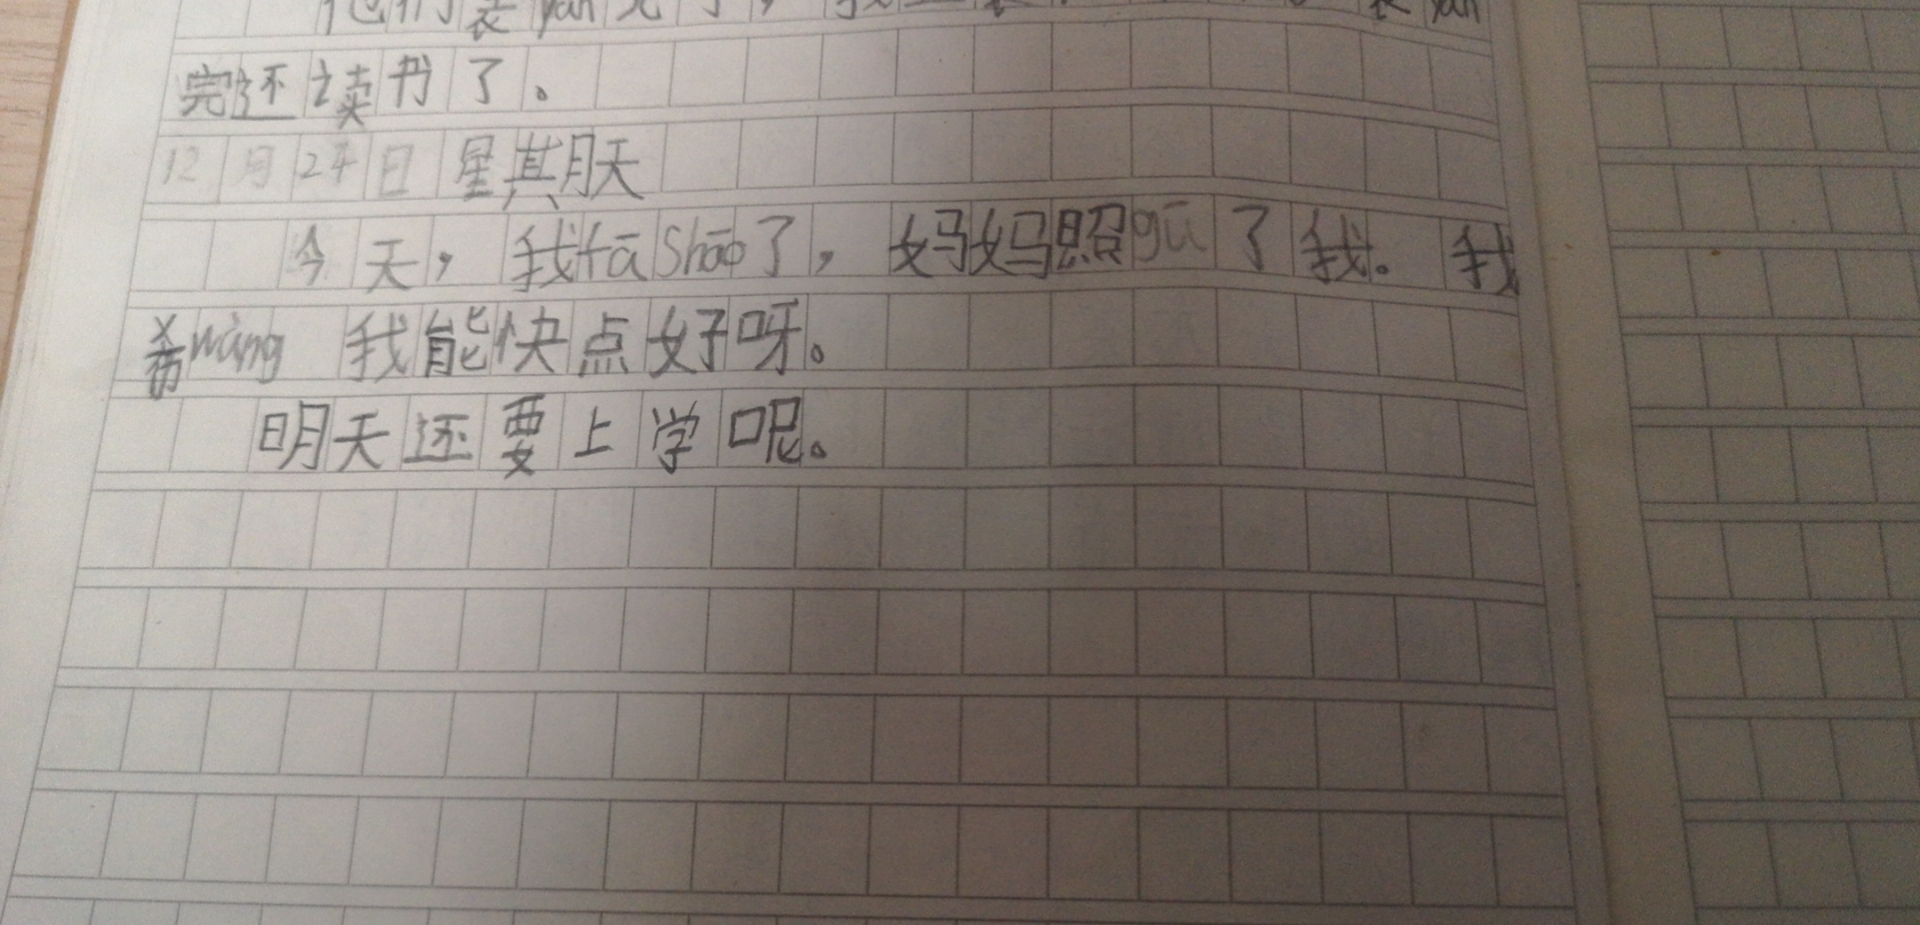 他们表yǎn完了，我
完还读书了。
12月24日 星其月天
今天，我fāshāo了，妈妈照gù了我。我
希wàng 我能快点好呀。
明天还要上学呢。